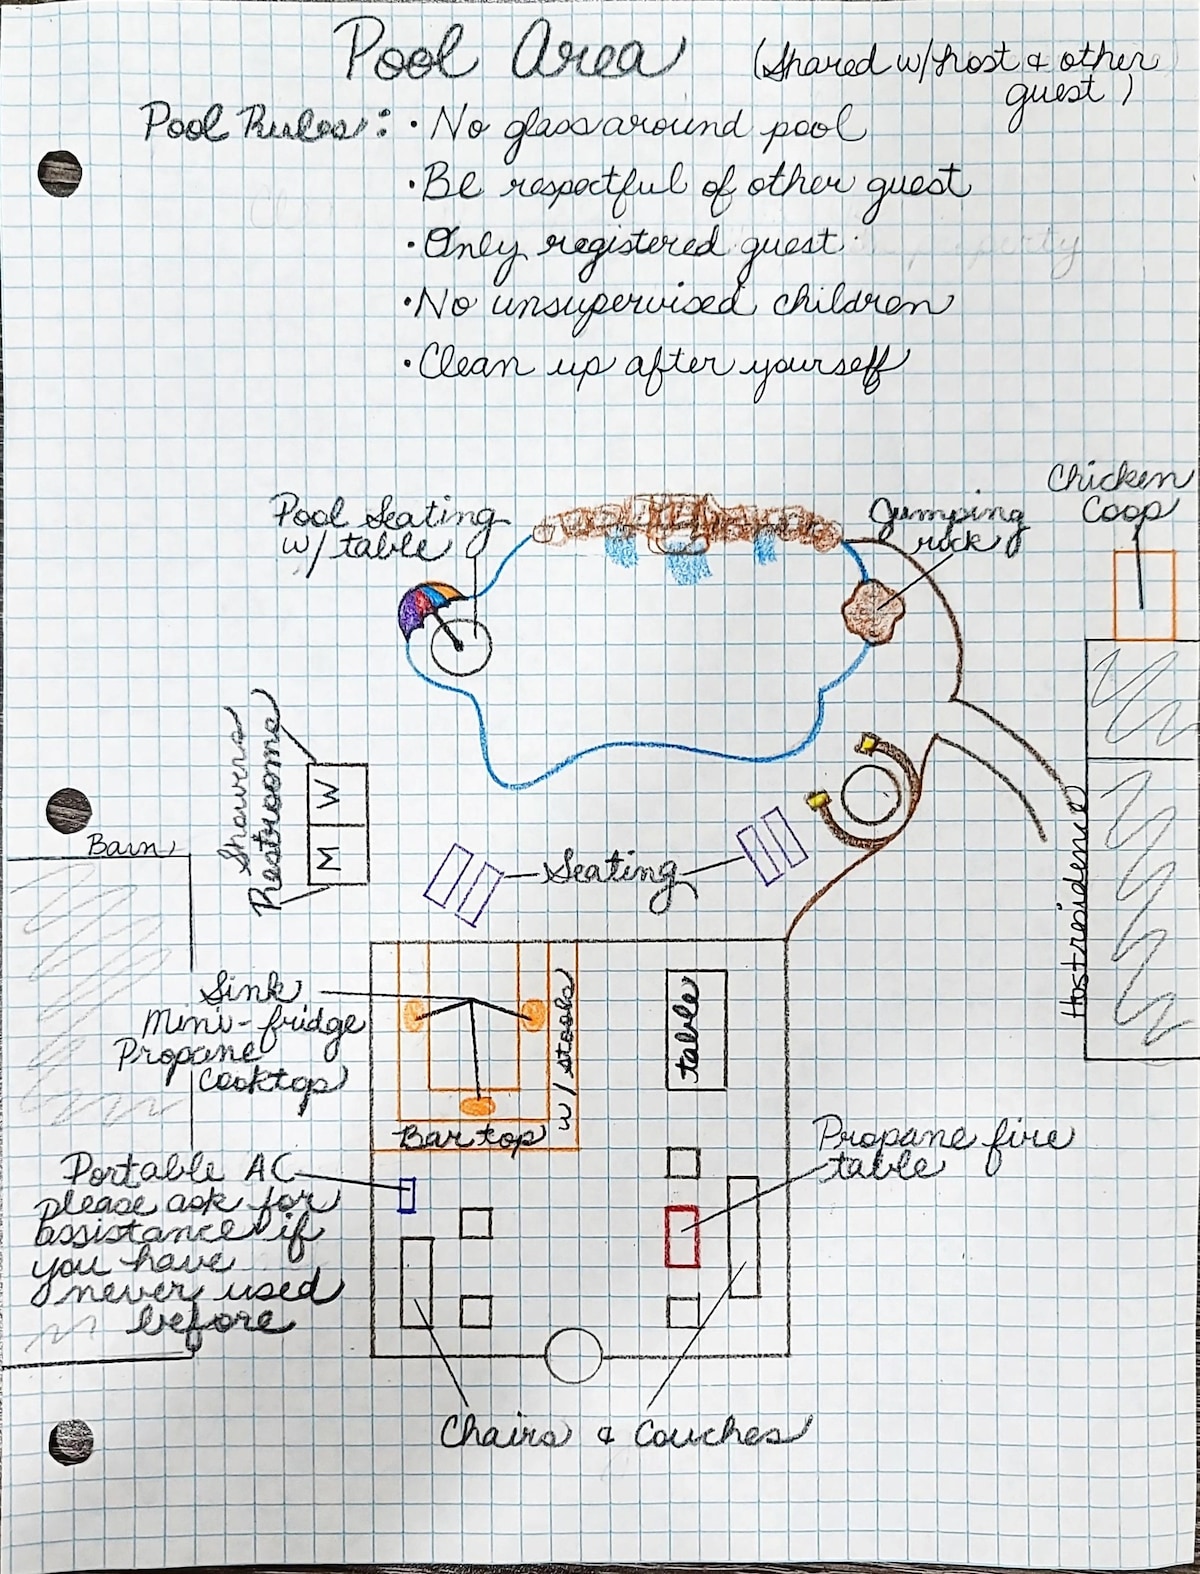 Pool Area
(Shared w/host & other
guest)
Pool Rules: • No glass around pool
• Be respectful of other guest
• Only registered guest
property
• No unsupervised children
• Clean up after yourself
Chicken
Coop
Pool Seating
w/ table
Jumping
rock
Showers
Restrooms
W
M
Barn
Seating
Host residence
Sink
Mini-fridge
Propane
Cooktop
w/ stools
table
Bar top
Propane fire
table
Portable AC
please ask for
assistance if
you have
never used
before
Chairs & Couches